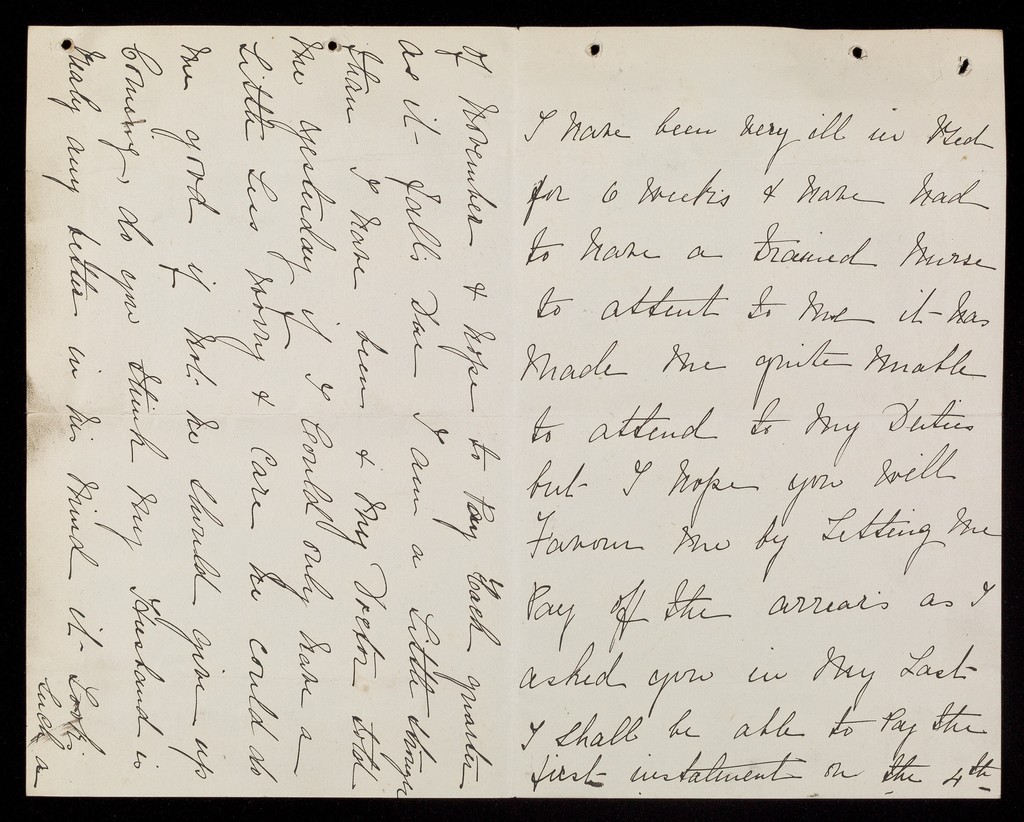 I have been very ill in Bed
for 6 weeks & have had
to have a trained nurse
to attent to me it has
made me quite unable
to attend to my Duties
but I hope you will
Favour me by Letting me
Pay off the arrears as I
asked you in my Last
I shall be able to Pay the
first instalment on the 4th
of November & hope to Pay Each quarter
as it falls Due I am a Little
than I have been & my Doctor told
me yesterday if I Could only have a
Little Less worry & Care he could do
me good if not he should give up
Coming, do you think my Husband is
realy any better in his mind it Looks
Such a